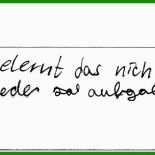 elernt das nich
eder aufga